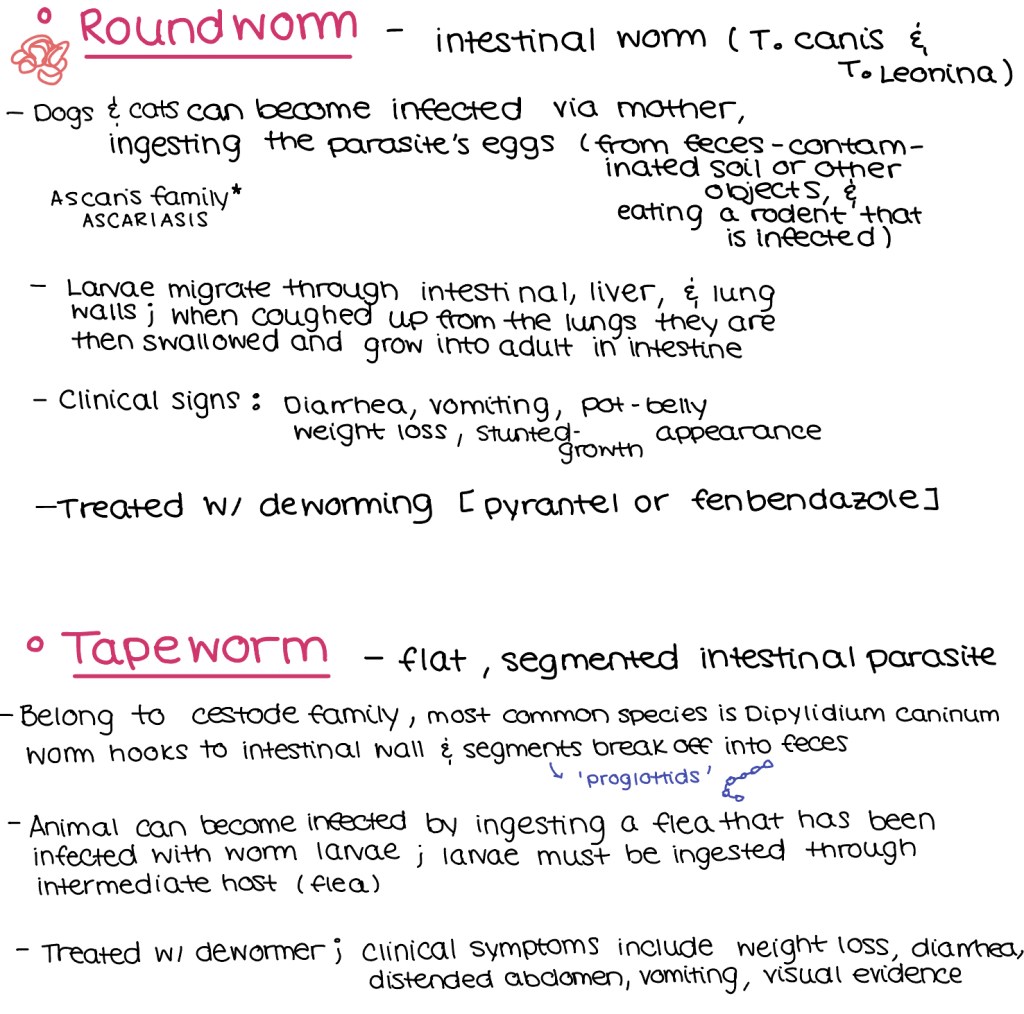 Roundworm - intestinal worm (T. canis &
T. Leonina)
- Dogs & cats can become infected via mother,
ingesting the parasite's eggs (from feces-contam-
inated soil or other
objects, &
eating a rodent that
is infected)
Ascaris family*
ASCARIASIS
- Larvae migrate through intestinal, liver, & lung
walls; when coughed up from the lungs they are
then swallowed and grow into adult in intestine
- Clinical signs: Diarrhea, vomiting, pot-belly
weight loss, stunted- appearance
growth
- Treated w/ deworming [pyrantel or fenbendazole]
Tapeworm - flat, segmented intestinal parasite
- Belong to cestode family, most common species is Dipylidium caninum
worm hooks to intestinal wall & segments break off into feces
'proglottids'
- Animal can become infected by ingesting a flea that has been
infected with worm larvae; larvae must be ingested through
intermediate host (flea)
- Treated w/ dewormer; clinical symptoms include weight loss, diarrhea,
distended abdomen, vomiting, visual evidence